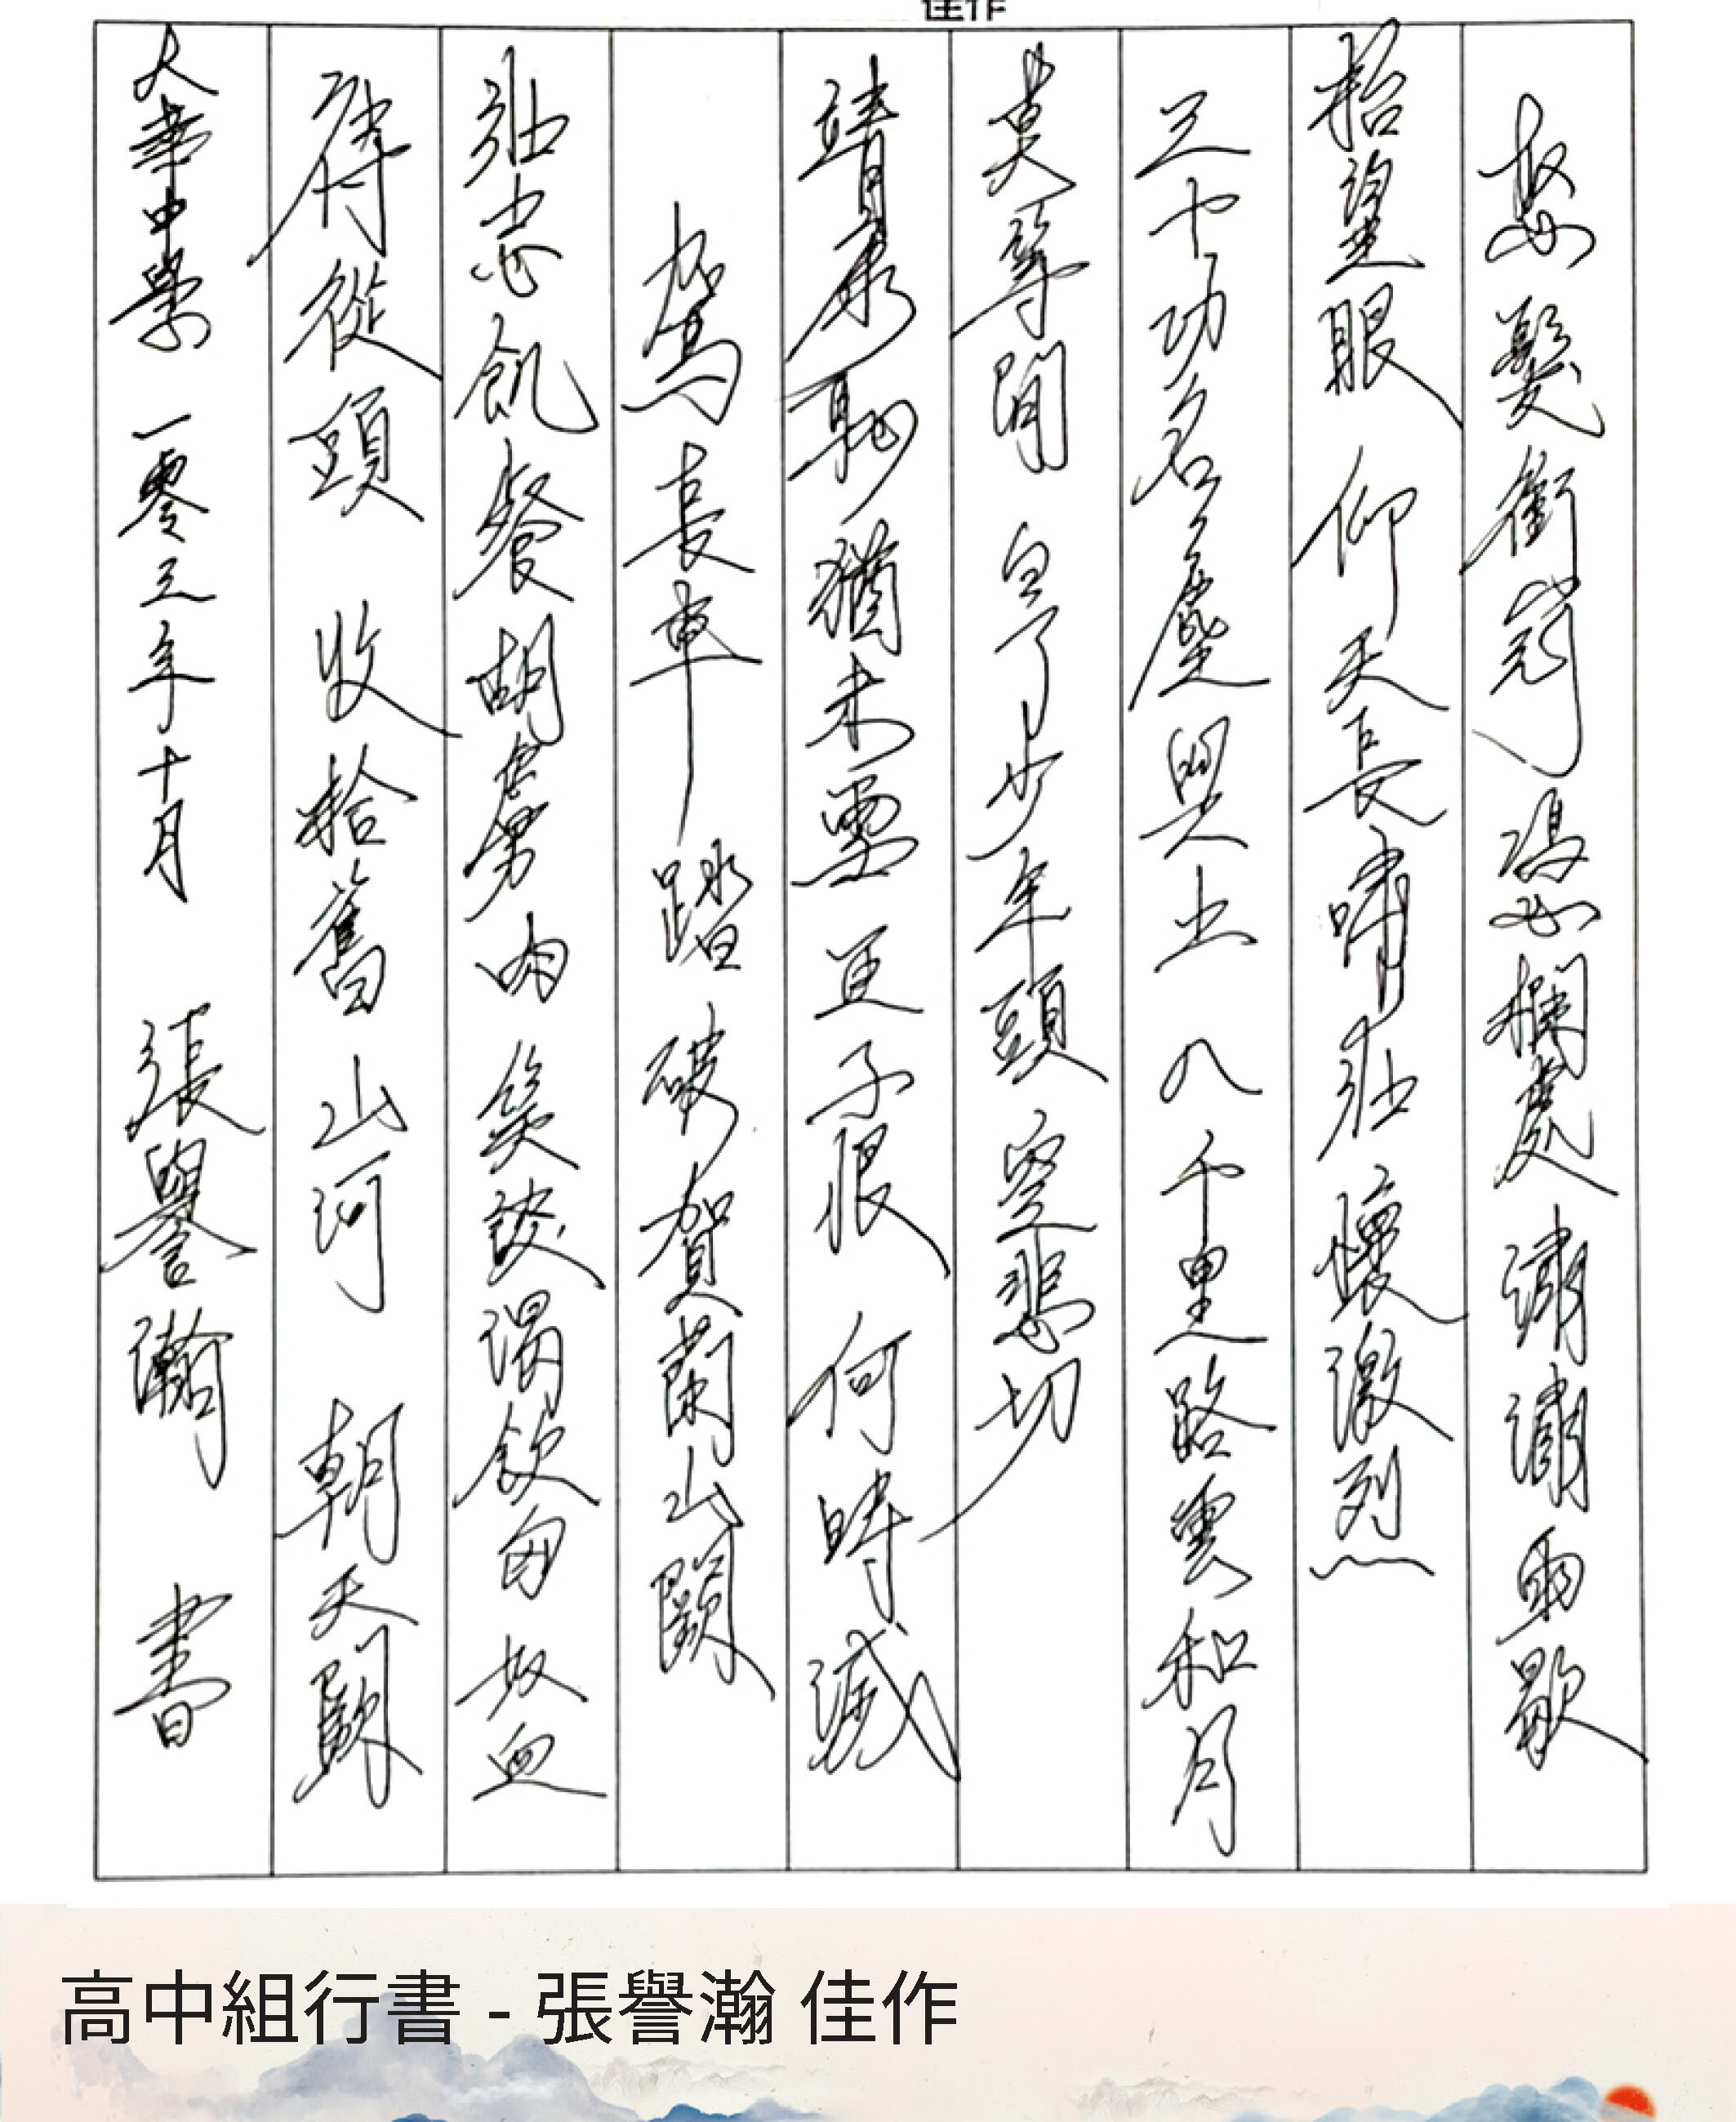 佳作
怒髮衝冠 憑欄處 瀟瀟雨歇
抬望眼 仰天長嘯壯懷激烈
三十功名塵與土 八千里路雲和月
莫等閒 白了少年頭 空悲切
靖康恥 猶未雪 臣子恨 何時滅
駕長車 踏破賀蘭山闕
壯志飢餐胡虜肉 笑談渴飲匈奴血
待從頭 收拾舊山河 朝天闕
大華中學 一零三年十月 張譽瀚 書
高中組行書 - 張譽瀚 佳作